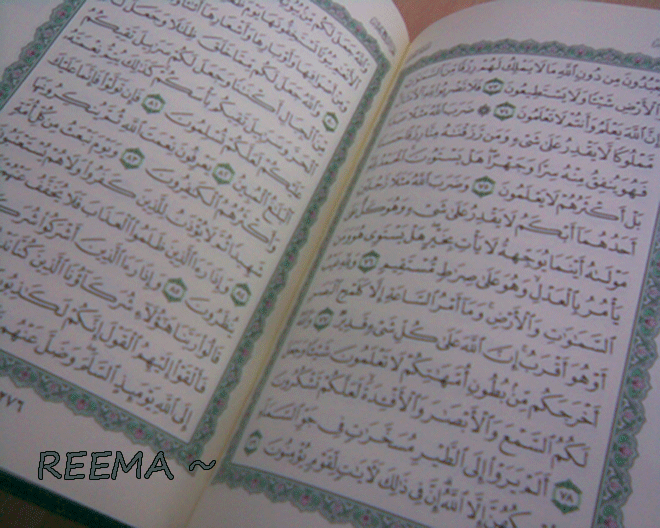 مِن دُونِ ٱللَّهِ مَا لَا يَمْلِكُ لَهُمْ رِزْقًا مِّنَ
وَٱلْأَرْضِ شَيْـًٔا وَلَا يَسْتَطِيعُونَ ٧٣ فَلَا تَضْرِبُوا۟ لِلَّهِ
إِنَّ ٱللَّهَ يَعْلَمُ وَأَنتُمْ لَا تَعْلَمُونَ ٧٤ ۞ ضَرَبَ ٱللَّهُ مَثَلًا
مَّمْلُوكًا لَّا يَقْدِرُ عَلَىٰ شَىْءٍ وَمَن رَّزَقْنَـٰهُ مِنَّا رِزْقًا
فَهُوَ يُنفِقُ مِنْهُ سِرًّا وَجَهْرًا هَلْ يَسْتَوُۥنَ ٱلْحَمْدُ
بَلْ أَكْثَرُهُمْ لَا يَعْلَمُونَ ٧٥ وَضَرَبَ ٱللَّهُ مَثَلًا رَّجُلَيْنِ
أَحَدُهُمَآ أَبْكَمُ لَا يَقْدِرُ عَلَىٰ شَىْءٍ وَهُوَ كَلٌّ
مَوْلَىٰهُ أَيْنَمَا يُوَجِّههُّ لَا يَأْتِ بِخَيْرٍ هَلْ يَسْتَوِى هُوَ وَمَن
يَأْمُرُ بِٱلْعَدْلِ وَهُوَ عَلَىٰ صِرَٰطٍ مُّسْتَقِيمٍ ٧٦ وَلِلَّهِ غَيْبُ
ٱلسَّمَـٰوَٰتِ وَٱلْأَرْضِ وَمَآ أَمْرُ ٱلسَّاعَةِ إِلَّا كَلَمْحِ ٱلْبَصَرِ
أَوْ هُوَ أَقْرَبُ إِنَّ ٱللَّهَ عَلَىٰ كُلِّ شَىْءٍ قَدِيرٌ ٧٧ وَٱللَّهُ
أَخْرَجَكُم مِّنۢ بُطُونِ أُمَّهَـٰتِكُمْ لَا تَعْلَمُونَ شَيْـًٔا وَجَعَلَ
لَكُمُ ٱلسَّمْعَ وَٱلْأَبْصَـٰرَ وَٱلْأَفْـِٔدَةَ لَعَلَّكُمْ تَشْكُرُونَ
٧٨ أَلَمْ يَرَوْا۟ إِلَى ٱلطَّيْرِ مُسَخَّرَٰتٍ فِى جَوِّ ٱلسَّمَآءِ
إِلَّا ٱللَّهُ إِنَّ فِى ذَٰلِكَ لَـَٔايَـٰتٍ لِّقَوْمٍ يُؤْمِنُونَ ٧٩
جَعَلَ لَكُم مِّنۢ
ٱلْأَنْعَـٰمِ بُيُوتًا تَسْتَخِفُّونَهَا يَوْمَ
أَصْوَافِهَا وَأَوْبَارِهَا وَأَشْعَارِهَآ
وَٱللَّهُ جَعَلَ لَكُم مِّمَّا خَلَقَ ظِلَـٰلًا وَجَعَلَ لَكُم
مِّنَ ٱلْجِبَالِ أَكْنَـٰنًا وَجَعَلَ لَكُمْ سَرَٰبِيلَ تَقِيكُمُ
ٱلْحَرَّ وَسَرَٰبِيلَ تَقِيكُم بَأْسَكُمْ كَذَٰلِكَ يُتِمُّ نِعْمَتَهُۥ
عَلَيْكُمْ لَعَلَّكُمْ تُسْلِمُونَ ٨١ فَإِن تَوَلَّوْا۟ فَإِنَّمَا عَلَيْكَ
ٱلْبَلَـٰغُ ٱلْمُبِينُ ٨٢ يَعْرِفُونَ نِعْمَتَ ٱللَّهِ ثُمَّ يُنكِرُونَهَا
وَأَكْثَرُهُمُ ٱلْكَـٰفِرُونَ ٨٣ وَيَوْمَ نَبْعَثُ مِن كُلِّ أُمَّةٍ
شَهِيدًا ثُمَّ لَا يُؤْذَنُ لِلَّذِينَ كَفَرُوا۟ وَلَا هُمْ يُسْتَعْتَبُونَ
٨٤ وَإِذَا رَءَا ٱلَّذِينَ ظَلَمُوا۟ ٱلْعَذَابَ فَلَا يُخَفَّفُ عَنْهُمْ
يُنظَرُونَ ٨٥ وَإِذَا رَءَا ٱلَّذِينَ أَشْرَكُوا۟ شُرَكَآءَهُمْ
قَالُوا۟ رَبَّنَا هَـٰٓؤُلَآءِ شُرَكَآؤُنَا ٱلَّذِينَ كُنَّا
فَأَلْقَوْا۟ إِلَيْهِمُ ٱلْقَوْلَ إِنَّكُمْ لَكَـٰذِبُونَ
إِلَى ٱللَّهِ يَوْمَئِذٍ ٱلسَّلَمَ وَضَلَّ عَنْهُم
٢٧٦
REEMA ~